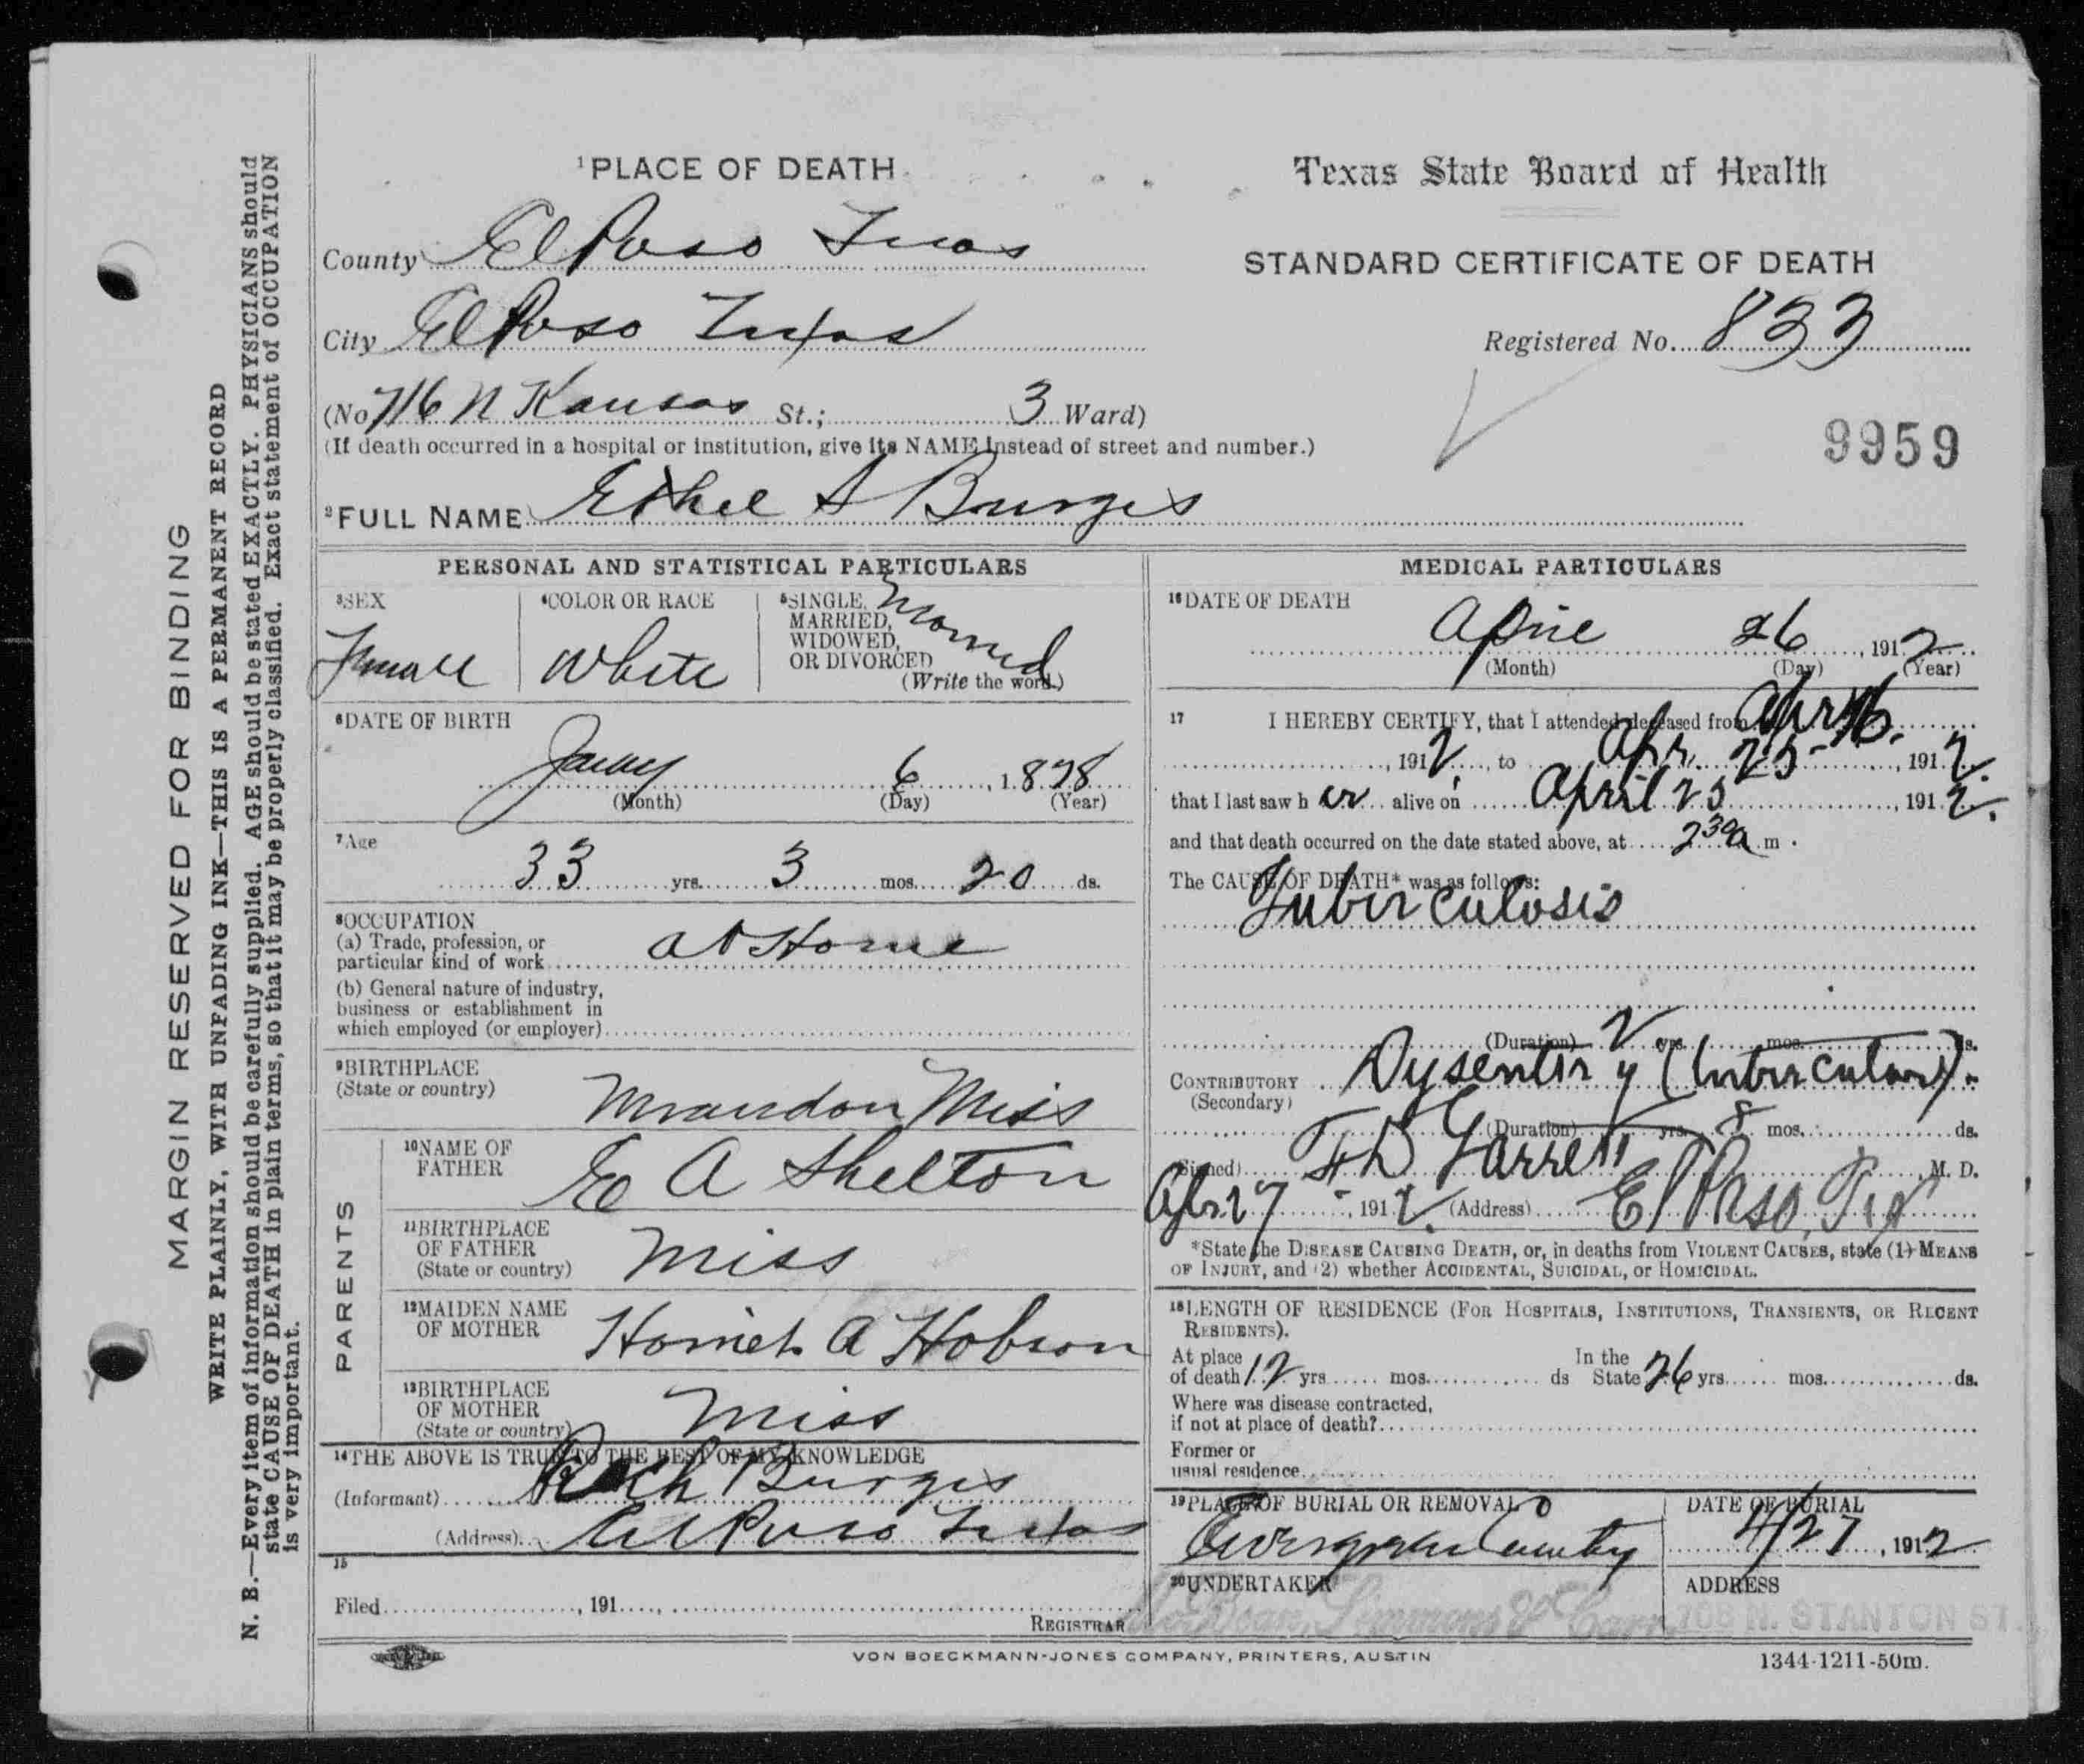 MARGIN RESERVED FOR BINDING
WRITE PLAINLY, WITH UNFADING INK—THIS IS A PERMANENT RECORD
N. B.—Every item of information should be carefully supplied. AGE should be stated EXACTLY. PHYSICIANS should
state CAUSE OF DEATH in plain terms, so that it may be properly classified. Exact statement of OCCUPATION
is very important.
1 PLACE OF DEATH
County El Paso Texas
City El Paso Texas
(No 716 N Kansas St.; 3 Ward)
(If death occurred in a hospital or institution, give its NAME instead of street and number.)
2 FULL NAME Ethel S Burges
Texas State Board of Health
STANDARD CERTIFICATE OF DEATH
Registered No. 833
9959
PERSONAL AND STATISTICAL PARTICULARS
3 SEX
Female
4 COLOR OR RACE
White
5 SINGLE,
MARRIED,
WIDOWED,
OR DIVORCED
(Write the word.)
Married
6 DATE OF BIRTH
6, 1878
(Month) (Day) (Year)
7 Age
33 yrs. 3 mos. 20 ds.
8 OCCUPATION
(a) Trade, profession, or
particular kind of work at Home
(b) General nature of industry,
business or establishment in
which employed (or employer)
9 BIRTHPLACE
(State or country)
Miss
PARENTS
10 NAME OF
FATHER
E A Shelton
11 BIRTHPLACE
OF FATHER
(State or country)
Miss
12 MAIDEN NAME
OF MOTHER
A Hobson
13 BIRTHPLACE
OF MOTHER
(State or country)
Miss
14 THE ABOVE IS TRUE TO THE BEST OF MY KNOWLEDGE
(Informant) Burges
(Address) El Paso Texas
15
Filed , 191 ,
REGISTRAR
MEDICAL PARTICULARS
16 DATE OF DEATH
April 26, 1912
(Month) (Day) (Year)
17 I HEREBY CERTIFY, that I attended deceased from Apr
, 1912, to Apr. 25, 1912.
that I last saw her alive on April 25, 1912.
and that death occurred on the date stated above, at 2 30 a m.
The CAUSE OF DEATH* was as follows:
Tuberculosis
(Duration) 2 yrs. mos. ds.
CONTRIBUTORY Dysentery (Tubercular).
(Secondary)
(Duration) yrs. 8 mos. ds.
(Signed) Garrett M. D.
Apr 27, 1912. (Address) El Paso, Tex
*State the DISEASE CAUSING DEATH, or, in deaths from VIOLENT CAUSES, state (1) MEANS
OF INJURY, and (2) whether ACCIDENTAL, SUICIDAL, or HOMICIDAL.
18 LENGTH OF RESIDENCE (FOR HOSPITALS, INSTITUTIONS, TRANSIENTS, OR RECENT
RESIDENTS).
At place In the
of death 12 yrs mos. ds State 26 yrs. mos. ds.
Where was disease contracted,
if not at place of death?
Former or
usual residence
19 PLACE OF BURIAL OR REMOVAL
Evergreen Cemetery
DATE OF BURIAL
4/27, 1912
20 UNDERTAKER
McBean, Simmons & Carr
ADDRESS
708 N. STANTON ST.
VON BOECKMANN-JONES COMPANY, PRINTERS, AUSTIN
1344-1211-50m.